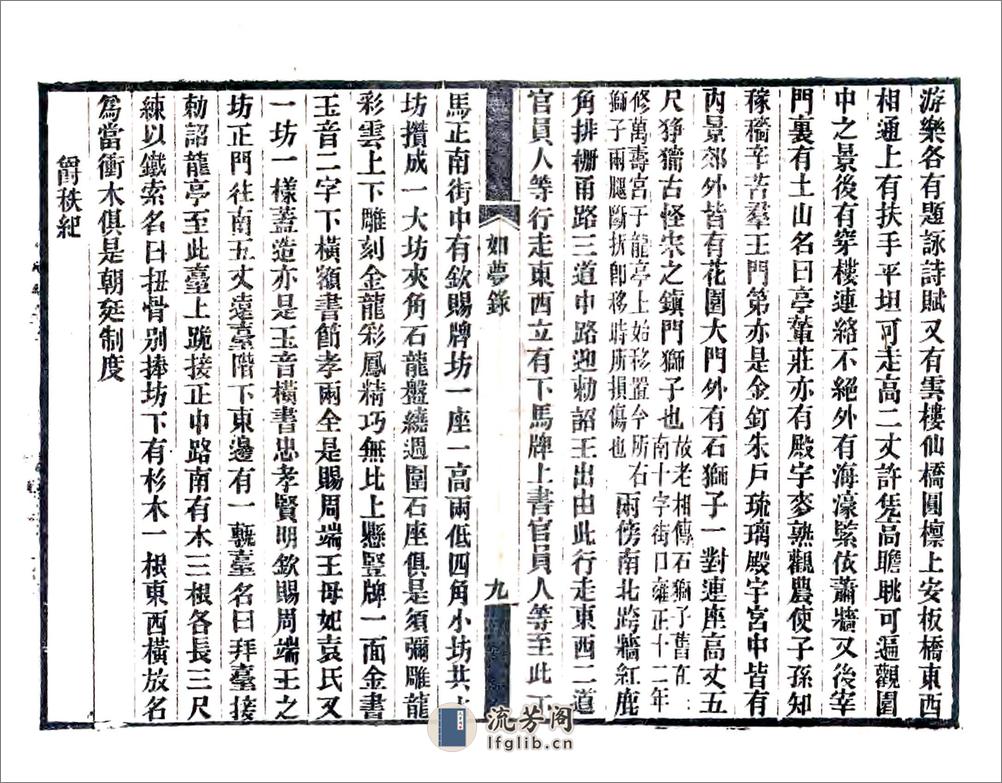 游樂各有題詠詩賦又有雲樓仙橋圓檁上安板橋東西
相通上有扶手平坦可走高二丈許凭高瞻眺可遍觀園
中之景後有穿樓連絡不絕外有海濠紫依蕭牆又後宰
門裏有土山名曰亭輦莊亦有殿宇麥熟觀農使子孫知
稼穡辛苦羣王門第亦是金釘朱戶琉璃殿宇宮中皆有
內景郊外皆有花園大門外有石獅子一對連座高丈五
尺猙獰古怪宋之鎮門獅子也故老相傳石獅子舊在
南十字街口雍正十二年
修萬壽宮于龍亭上始移置今所右
獅子兩腿斷折卽移時所損傷也兩傍南北跨牆紅鹿
角排柵甬路三道中路迎勅詔王出由此行走東西二道
官員人等行走東西立有下馬牌上書官員人等至此下
如夢錄
九
馬正南街中有欽賜牌坊一座一高兩低四角小坊共
坊攢成一大坊夾角石龍盤繞週圍石座俱是須彌雕龍
彩雲上下雕刻金龍彩鳳精巧無比上懸豎牌一面金書
玉音二字下橫額書節孝兩全是賜周端王母妃袁氏又
一坊一樣蓋造亦是玉音橫書忠孝賢明欽賜周端王之
坊正門往南五丈遠臺階下東邊有一甎臺名曰拜臺接
勅詔龍亭至此臺上跪接正中路南有木三根各長三尺
練以鐵索名曰扭骨別捧坊下有杉木一根東西橫放名
爲當衝木俱是朝廷制度
爵秩紀
流芳阁
lfglib.cn